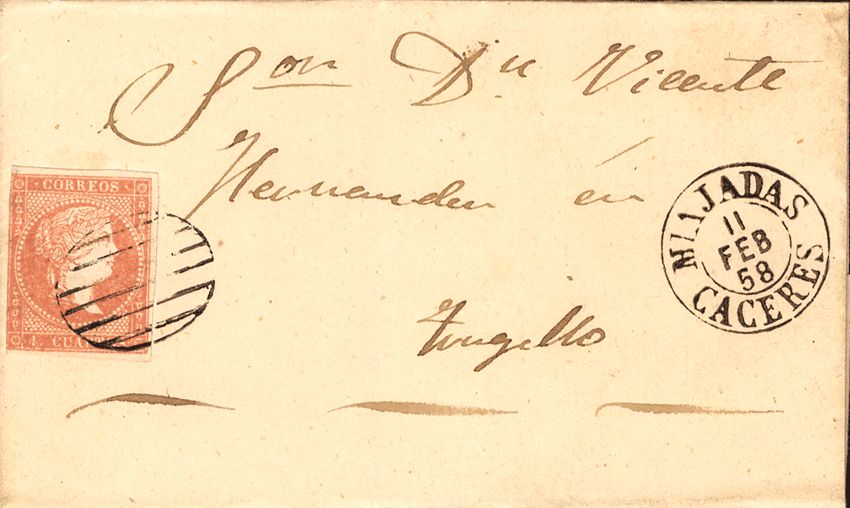 Sor Dn Vicente
Hernandez én
Trugillo
CORREOS
4 CUARTOS
MIAJADAS
11
FEB
58
CACERES